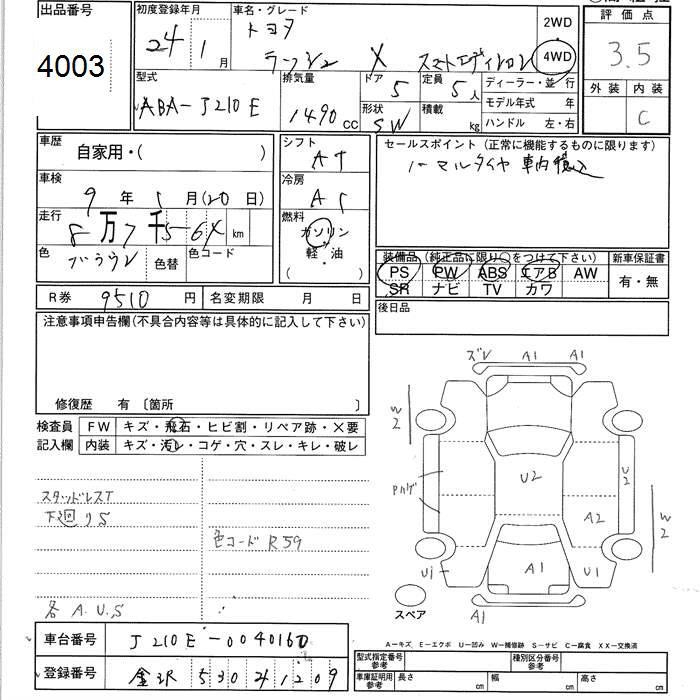 出品番号
4003
初度登録年月
24 年 1 月
車名・グレード
トヨタ
ラッシュ X
2WD
4WD
評価点
3.5
外装 内装
C
型式
ABA-J210E
排気量
1490 cc
ドア 5
定員 5人
形状 SW
積載 kg
ディーラー・並行
モデル年式 年
ハンドル 左・右
車歴
自家用・( )
車検
9 年 1 月(20 日)
走行
8万7千 km
色
ブラウン
色替
色コード
シフト AT
冷房
燃料
ガソリン
軽・油
( )
セールスポイント (正常に機能するものに限ります)
ノーマルタイヤ 車内積込
装備品 (純正品に限り○をつけて下さい)
PS PW ABS エアB AW
SR ナビ TV カワ
新車保証書
有・無
R券 9510 円
名変期限 月 日
後日品
注意事項申告欄(不具合内容等は具体的に記入して下さい)
修復歴 有 〔箇所 〕
検査員記入欄
FW キズ・飛石・ヒビ割・リペア跡・X要
内装 キズ・汚レ・コゲ・穴・スレ・キレ・破レ
スタッドレスT
下廻りS
色コード R59
各 A.U.S
ズレ A1 A1
W2
U2
U2
Pハゲ
A2
W2
A1
U1
U1
A1
スペア
車台番号 J210E-0040160
登録番号 金沢 530
A-キズ E-エクボ U-凹み W-補修跡 S-サビ C-腐食 XX-交換済
型式指定番号
参考
種別区分番号
参考
車庫証明用
参考
長さ cm
幅 cm
高さ cm